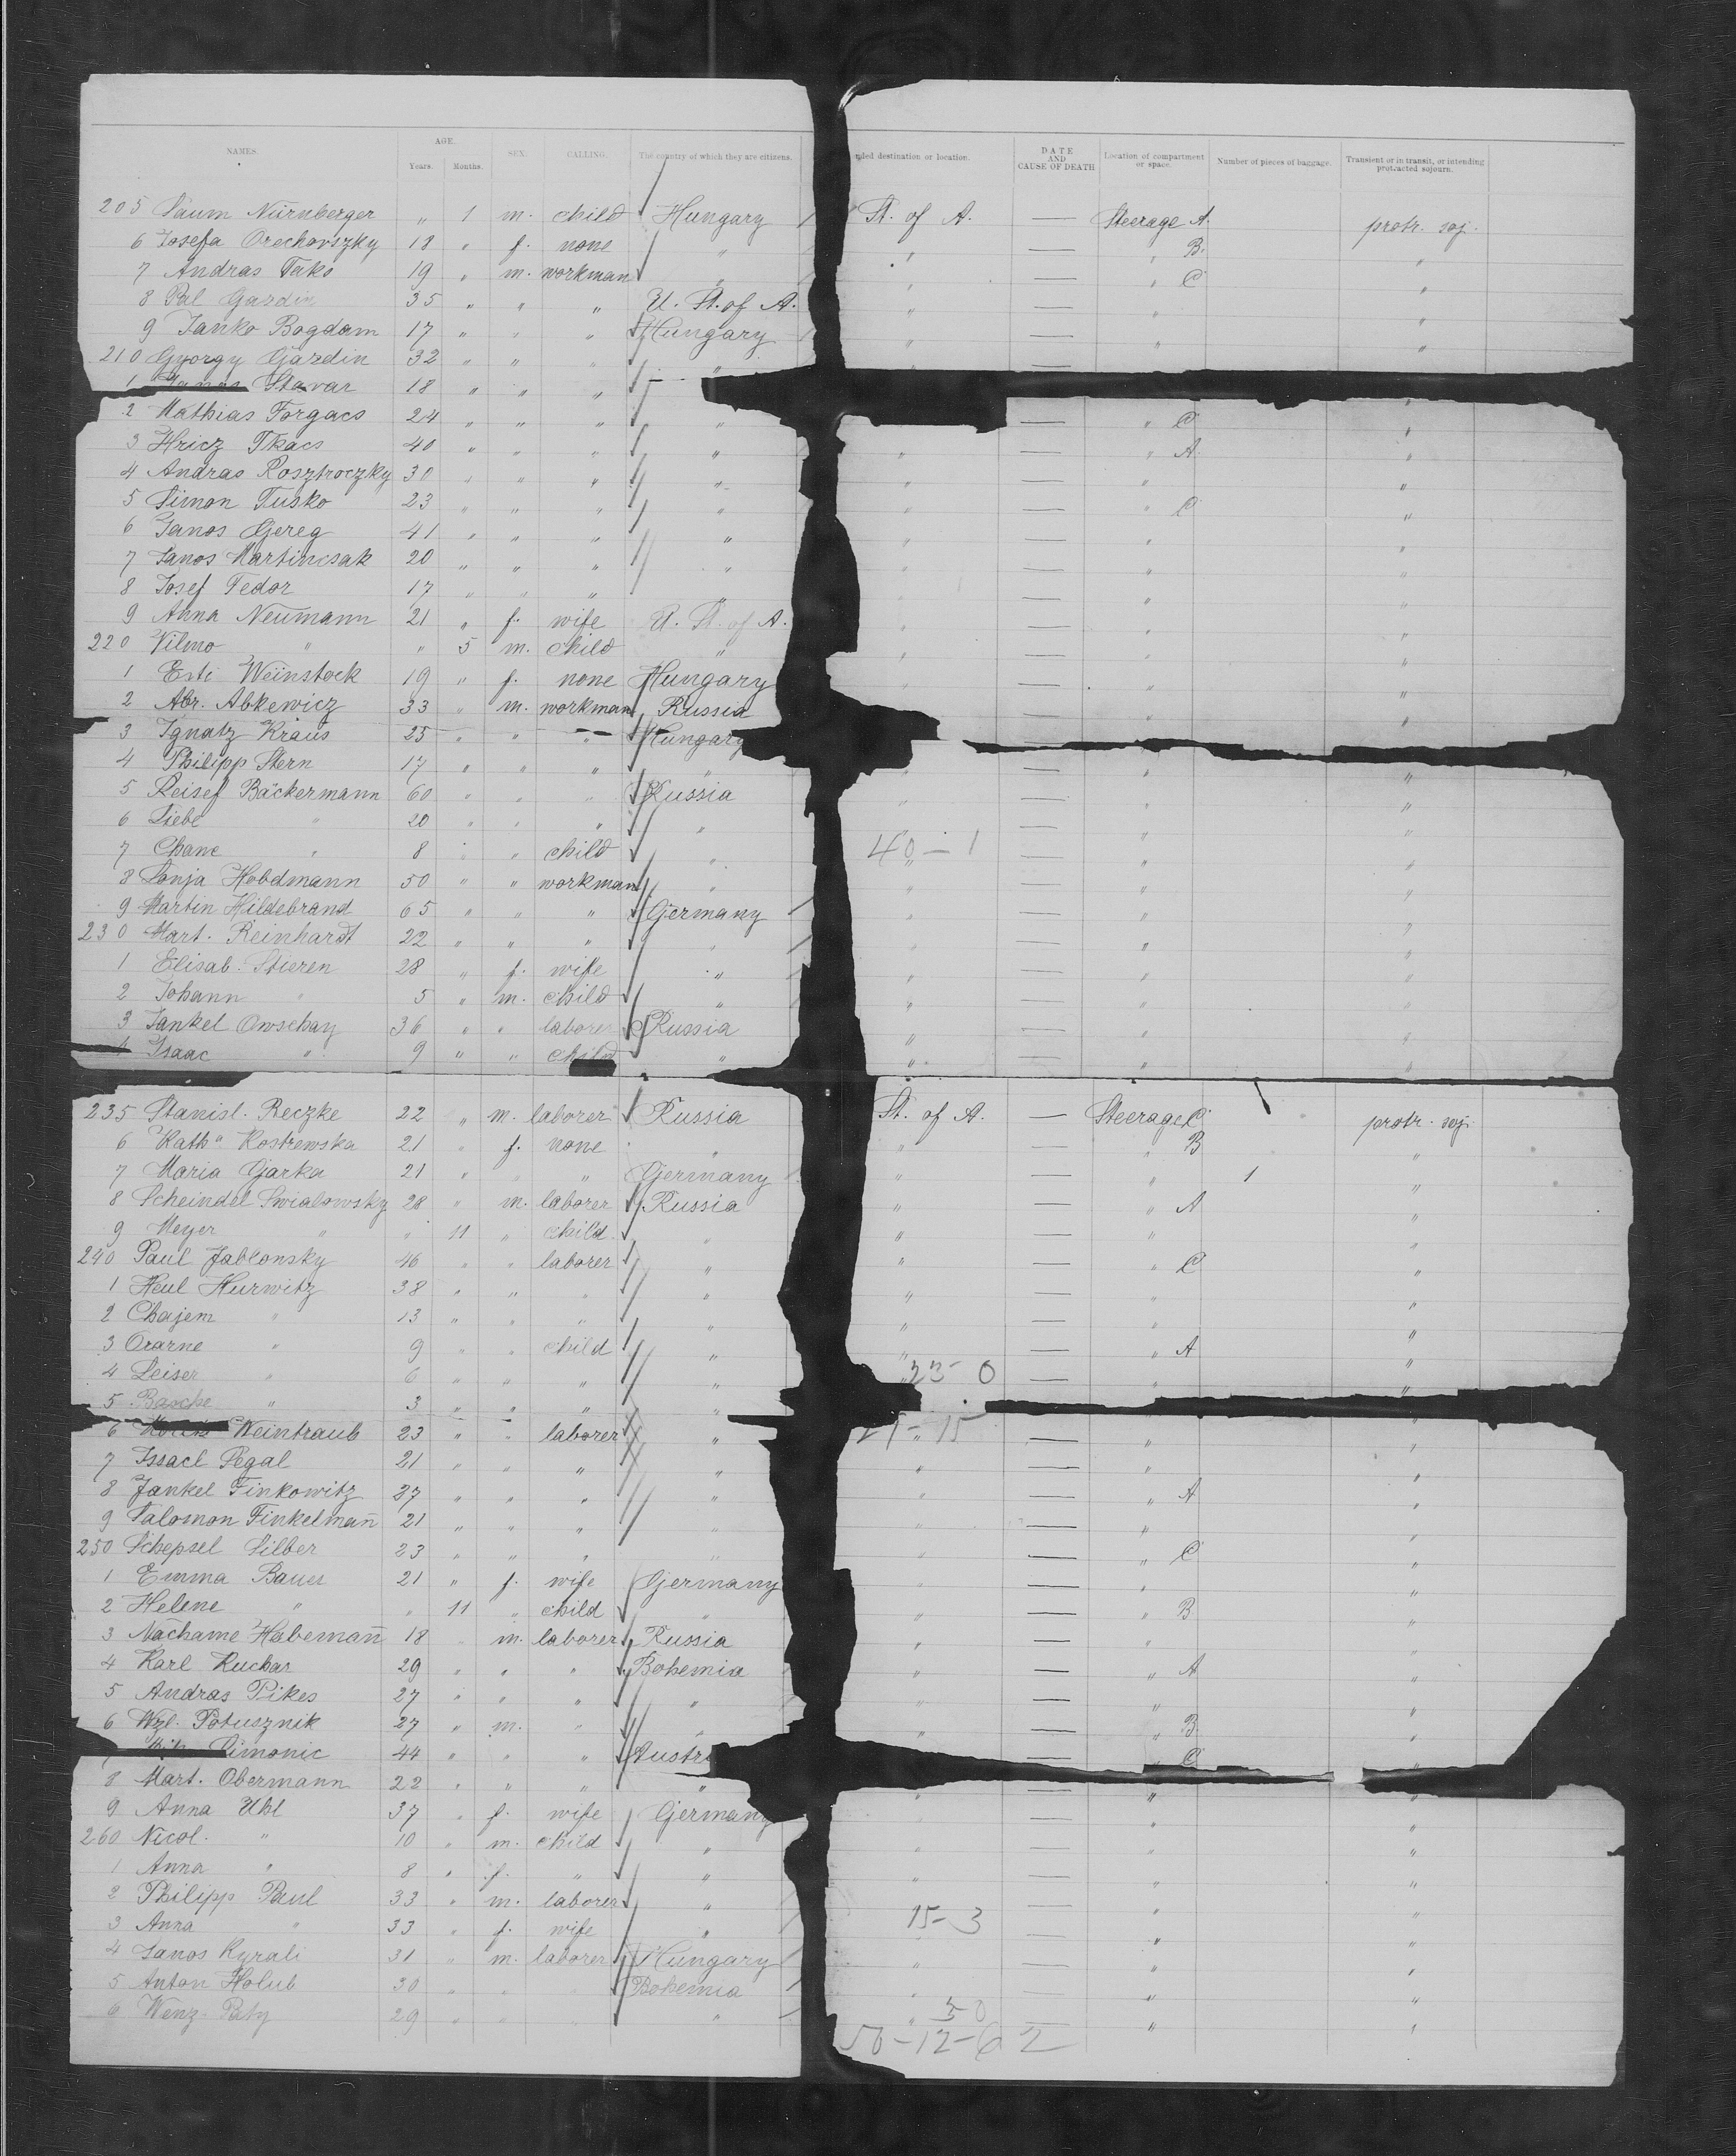 NAMES. AGE. Years. Months. SEX. CALLING. The country of which they are citizens. nded destination or location. DATE AND CAUSE OF DEATH Location of compartment or space. Number of pieces of baggage. Transient or in transit, or intending protracted sojourn.
205 Saum Nürnberger " 1 m. child Hungary St. of A. — Steerage A. protr. soj.
6 Josefa Orechovszky 18 " f. none " " — " B. "
7 Andras Tako 19 " m. workman " " — " C "
8 Pal Gazdin 35 " " " U. St. of A. " — " "
9 Janko Bogdam 17 " " " Hungary " — " "
210 Gyorgy Gazdin 32 " " " "
1 Stavar 18 " " "
2 Mathias Forgacs 24 " " " " — " C "
3 Hricz Tkacs 40 " " " " " — " A "
4 Andras Rosztroczky 30 " " " " " — " "
5 Simon Tusko 23 " " " " " — " C "
6 Janos Gereg 41 " " " " " — " "
7 Janos Martincsak 20 " " " " " — " "
8 Josef Fedor 17 " " " " " — " "
9 Anna Neumann 21 " f. wife U. St. of A. " — " "
220 Vilmo " " 5 m. child " " — " "
1 Esti Weinstock 19 " f. none Hungary " — " "
2 Abr. Abkewicz 33 " m. workman Russia — " "
3 Ignatz Kraus 25 " " " Hungary
4 Philipp Stern 17 " " " " " — " "
5 Reisef Bäckermann 60 " " " Russia " — " "
6 Liebe " 20 " " " " " — " "
7 Chane " 8 " " child " 40 — 1 — " "
8 Sonja Hobdmann 50 " " workman " " — " "
9 Martin Hildebrand 65 " " " Germany " — " "
230 Mart. Reinhardt 22 " " " " " — " "
1 Elisab. Stieren 28 " f. wife " " — " "
2 Johann " 5 " m. child " " — " "
3 Jankel Owschay 36 " " laborer Russia " — " "
4 Isaac " 9 " " child " " — " "
235 Stanisl. Reczke 22 " m. laborer Russia St. of A. — Steerage C protr. soj
6 Kath" Kostrewska 21 " f. none " " — " B "
7 Maria Gjarka 21 " " " Germany " — " 1 "
8 Scheindel Swialowsky 28 " m. laborer Russia " — " A "
9 Meyer " " 11 " child " " — " "
240 Paul Jablonsky 46 " " laborer " " — " C "
1 Heul Hurwitz 38 " " " " " — " "
2 Chajem " 13 " " " " " — " "
3 Orarne " 9 " " child " " — " A "
4 Leiser " 6 " " " " 23 - 0 — " "
5 Basche " 3 " " " "
6 Weintraub 23 " " laborer " - 15 — " "
7 Issacl Segal 21 " " " " " — " "
8 Jankel Finkowitz 37 " " " " " — " A "
9 Salomon Finkelmañ 21 " " " " " — " "
250 Schepsel Silber 23 " " " " " — " C "
1 Emma Bauer 21 " f. wife Germany " — " "
2 Helene " " 11 " child " " — " B "
3 Nachame Habemañ 18 " m. laborer Russia " — " "
4 Karl Kuchar 29 " " " Bohemia " — " A "
5 Andras Pikes 27 " " " " " — " "
6 Wzl. Potusznik 27 " m. " " " — " B "
7 Simonic 44 " " " Austr — " C "
8 Mart. Obermann 22 " " " " " — " "
9 Anna Uhl 37 " f. wife Germany " — " "
260 Nicol. " 10 " m. child " " — " "
1 Anna " 8 " f. " " " — " "
2 Philipp Paul 33 " m. laborer " " — " "
3 Anna " 33 " f. wife " 15 - 3 — " "
4 Janos Kyrali 31 " m. laborer Hungary " — " "
5 Anton Holub 30 " " " Bohemia " — " "
6 Wenz. Paty 29 " " " " " 50 — " "
50 - 12 - 62